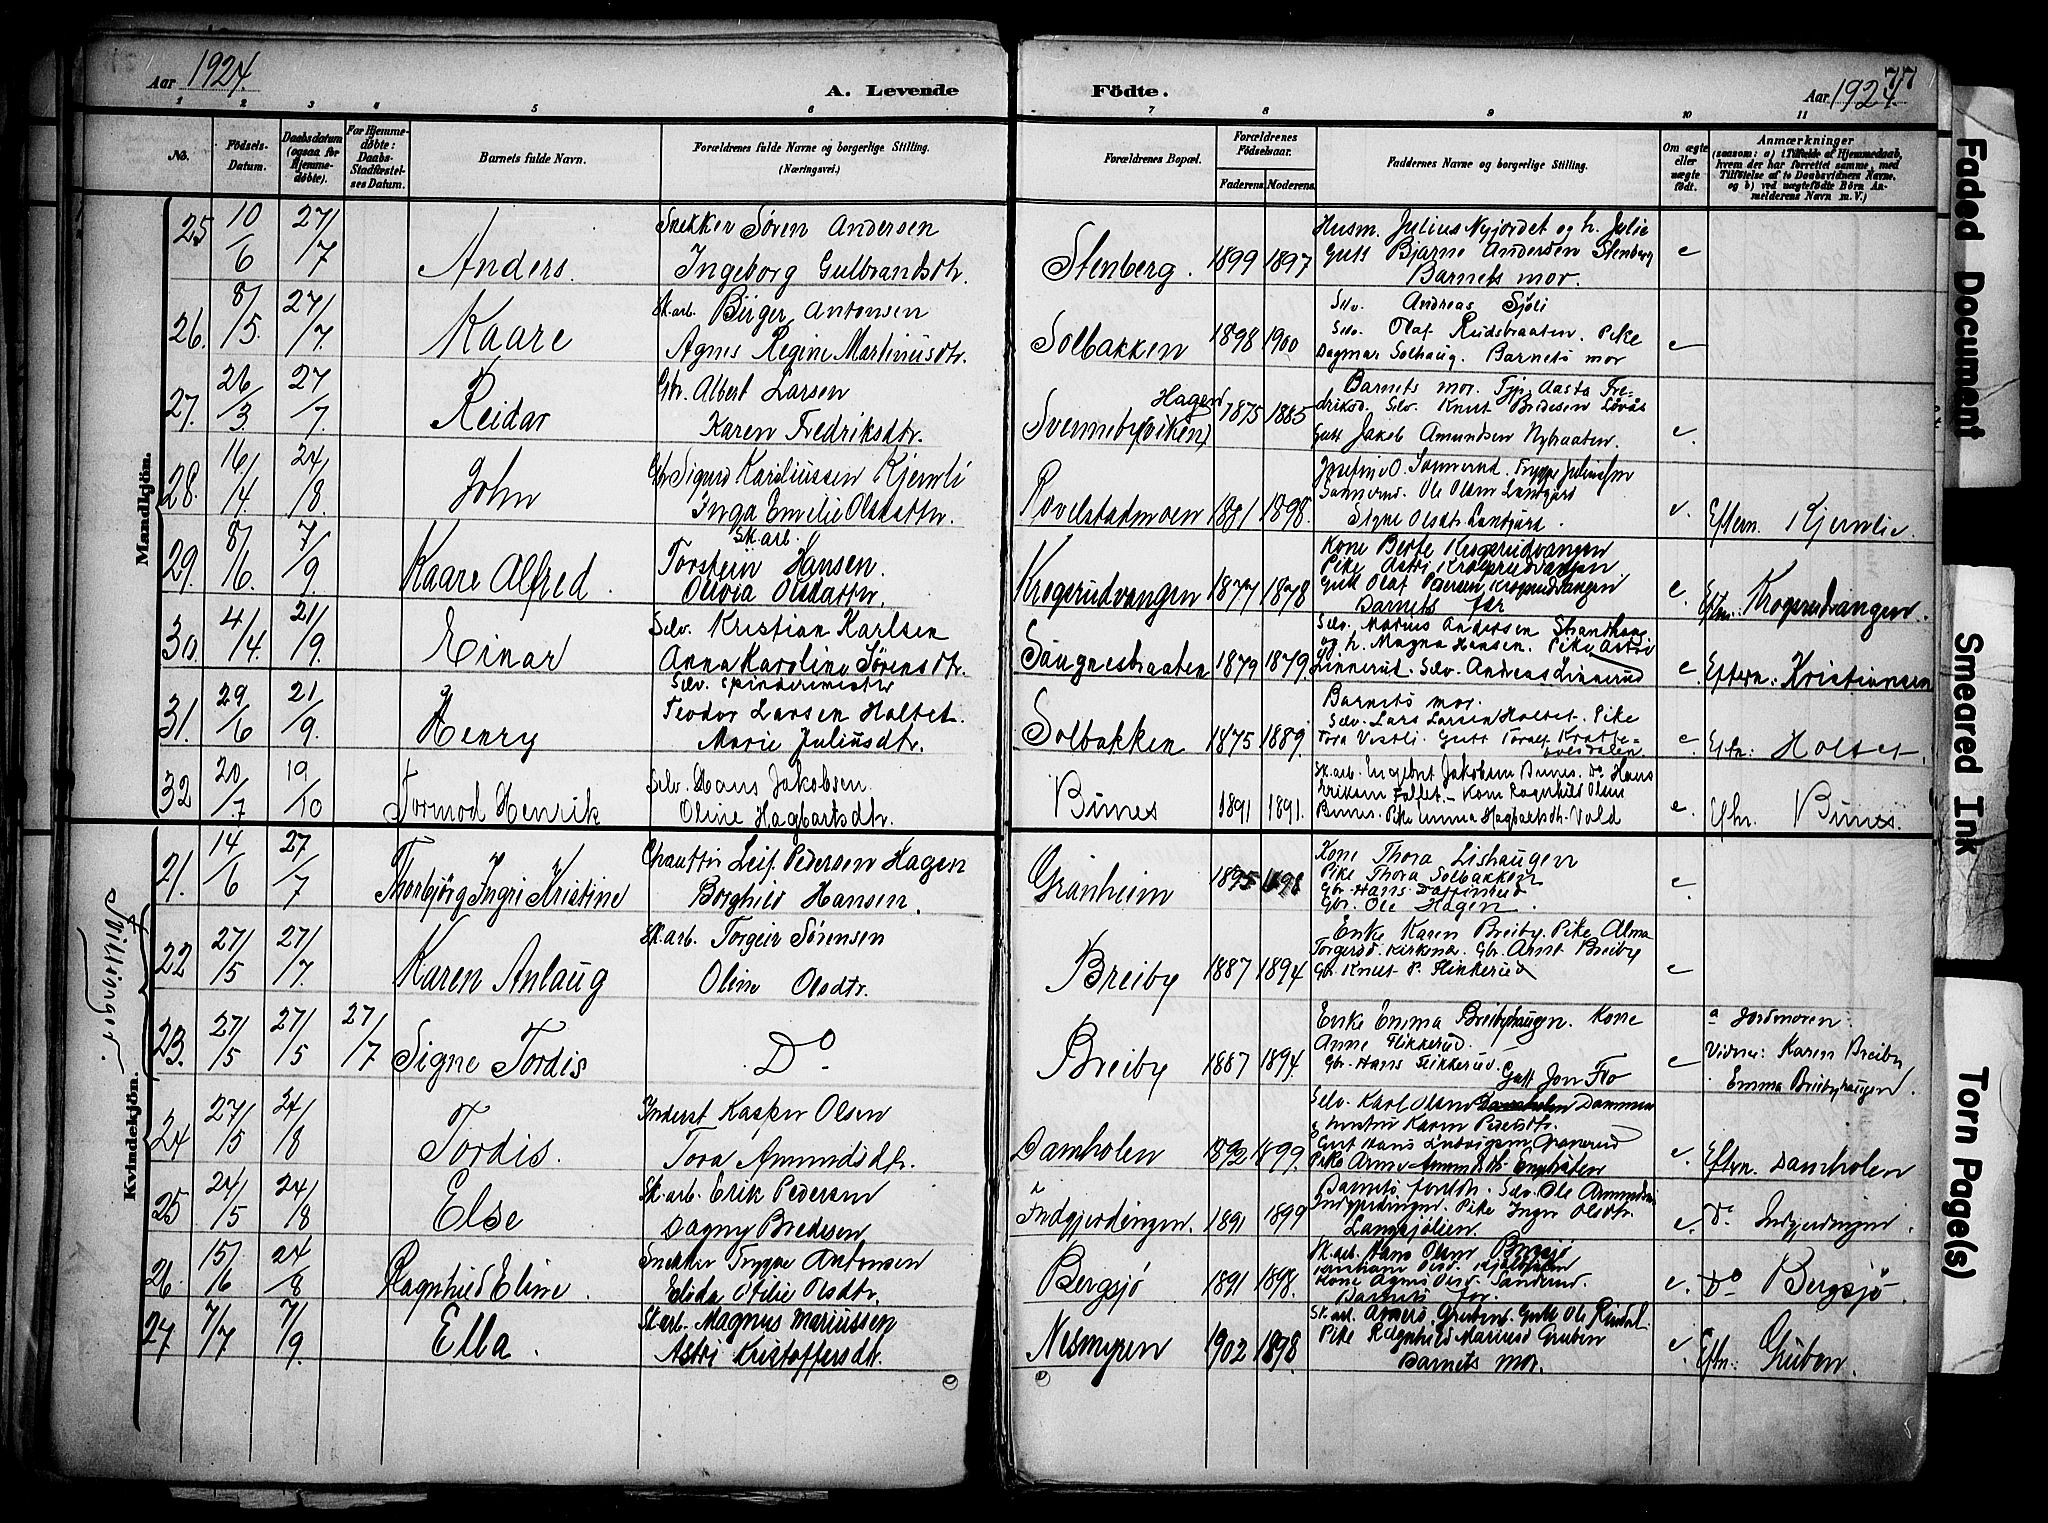 Aar 1924.
A. Levende
Födte.
Aar 1924.
77
1 2 3 4 5 6 7 8 9 10 11
No.
Födsels-Datum.
Daabsdatum (ogsaa for Hjemmedøbte).
For Hjemmedøbte: Daabs-Stadfæstelses Datum.
Barnets fulde Navn.
Forældrenes fulde Navne og borgerlige Stilling.
(Næringsvei.)
Forældrenes Bopæl.
Forældrenes Födselsaar.
Faderens. Moderens.
Faddernes Navne og borgerlige Stilling.
Om ægte eller uægte födt.
Anmærkninger
(saasom: a) i Tilfælde af Hjemmedaab, hvem der har forrettet samme, med Tilföielse af to Daabsvidners Navne, og b) ved uægtefödte Börn Anmelderens Navn m. V.)
Mandkjön.
25 10/6 27/7 Anders. Snekker Sören Andersen
Ingeborg Gulbrandsdtr. Stenberg. 1899 1897
Husm. Julius Nyjordet og h. Julie
Gutt Bjarne Andersen Stenberg
Barnets mor. e
26. 8/5 27/7 Kaare Sk.arb. Birger Antonsen
Agnes Regine Martinusdtr. Solbakken 1898 1900
Selv. Andreas Sjöli
Selv. Olaf Rudsbraaten. Pike
Dagmar Solhaug. Barnets mor e
27. 26/3 27/7 Reidar Gbr. Albert Larsen
Karen Fredriksdtr. Hagen
Svenneby(viken) 1875 1885
Barnets mor. Tjp. Aasta Fre-
driksd. Selv. Knut Bredesen Lövås
Gutt Jakob Amundsen Nybraaten. e.
28. 16/4 24/8 John Gbr Sigurd Karsliussen Kjernli
Inga Emilie Olsdattr. Povelstadmoen 1881 1898.
Josefine O. Sannerud. Trygve Juliussen
Sannerud. Ole Olsen Landgård
Signe Olsdtr. e. Eftern. Kjernlie
29. 8/6 7/9 Kaare Alfred. Sk.arb.
Torstein Hansen.
Olivia Olsdattr. Krogsrudvangen 1877 1878
Kone Berte Krogsrudvangen
Pike Astri Krogsrudvangen
Gutt Olaf Pedersen, Krogsrudvangen
Barnets far e. Eftn.: Krogsrudvangen.
30. 4/4 21/9 Einar Selv. Kristian Karlsen
Anna Karoline Sörensdtr. Saugnesbraaten 1879 1879
Selv. Marius Andersen Strandhaug
og h. Magna Hansen. Pike Astri
Linnerud. Selv. Andreas Linnerud e Eftern.: Kristiansen
31. 29/6 21/9 Henry Selv. Spindemester
Teodor Larsen Holtet.
Marie Juliusdtr. Solbakken 1875 1889
Barnets mor.
Selv. Lars Larsen Holtet. Pike
Tora Vestli. Gutt Toralf Kratte- e. Eftn: Holtet.
32 20/7 19/10 Tormod Henrik Selv. Hans Jakobsen.
Oline Hagbartsdtr. Bunes 1891 1891.
Sk.arb. Engebret Jakobsen Bunes. Do Hans
Eriksen Toftet - Kone Ragnhild Olsen
Bunes. Pike Emma Hagbartsdtr. Vold e. Eftn. Bunes.
Kvindekjön.
Tvillinger.
21. 14/6 27/7 Thorbjörg Ingri Kristine Leif Pedersen Hagen
Borghild Hansen. Granheim 1895 1898
Kone Thora Lishaugen
Pike Thora Solbakken
Gbr. Hans
Gbr. Ole Hagen. e.
22 27/5 27/7 Karen Anlaug Sk.arb. Torgeir Sörensen
Oline Olsdtr. Breiby 1887 1894
Enke Karen Breiby. Pike Alma
Gbr. Arnt Breiby
Gbr Knut P. Flikkerud e
23. 27/5 27/5 27/7 Signe Tordis Do. Breiby 1887 1894.
Enke Emma Breibyhaugen. Kone
Anne Flikkerud.
Gbr. Hans Flikkerud. Gutt Jon Flo e
a Jordmoren.
Vidner: Karen Breiby
Emma Breibyhaugen.
24 27/5 24/8 Tordis. Inderst Kasper Olsen
Tora Amundsdtr. Damholen 1892 1899.
Selv. Karl Olsen Dammen
hustru Karen Pedersdtr.
Gutt Hans Ludvigsen Granerud
Pike Anne e. Eftrn. Damholen
25 24/5 24/8 Else Sk.arb. Erik Pedersen
Dagny Bredesen Indgjerdingen. 1891 1899
Selv. Ole Amundsen
Indgjerdingen. Pike Inger Olsdtr.
e. Do Indgjerdingen.
26. 15/6 24/8 Ragnhild Eline. Snekker Trygve Antonsen
Elida Otilie Olsdtr. Bergsjö 1891 1898.
Sk.arb. Hans Olsen Bergsjö
Kone Agnes Olsd. Sanderud.
Barnets far. e. Do Bergsjö.
27 7/7 7/9 Ella. Sk.arb. Magnus Mariussen
Astri Kristoffersdtr. Nesmyren 1902 1898
Gutt Ole
Pike Ragnhild Mariusd Gruben
Barnets mor. e. Eftn: Gruben.
Faded Document
Smeared Ink
Torn Page(s)